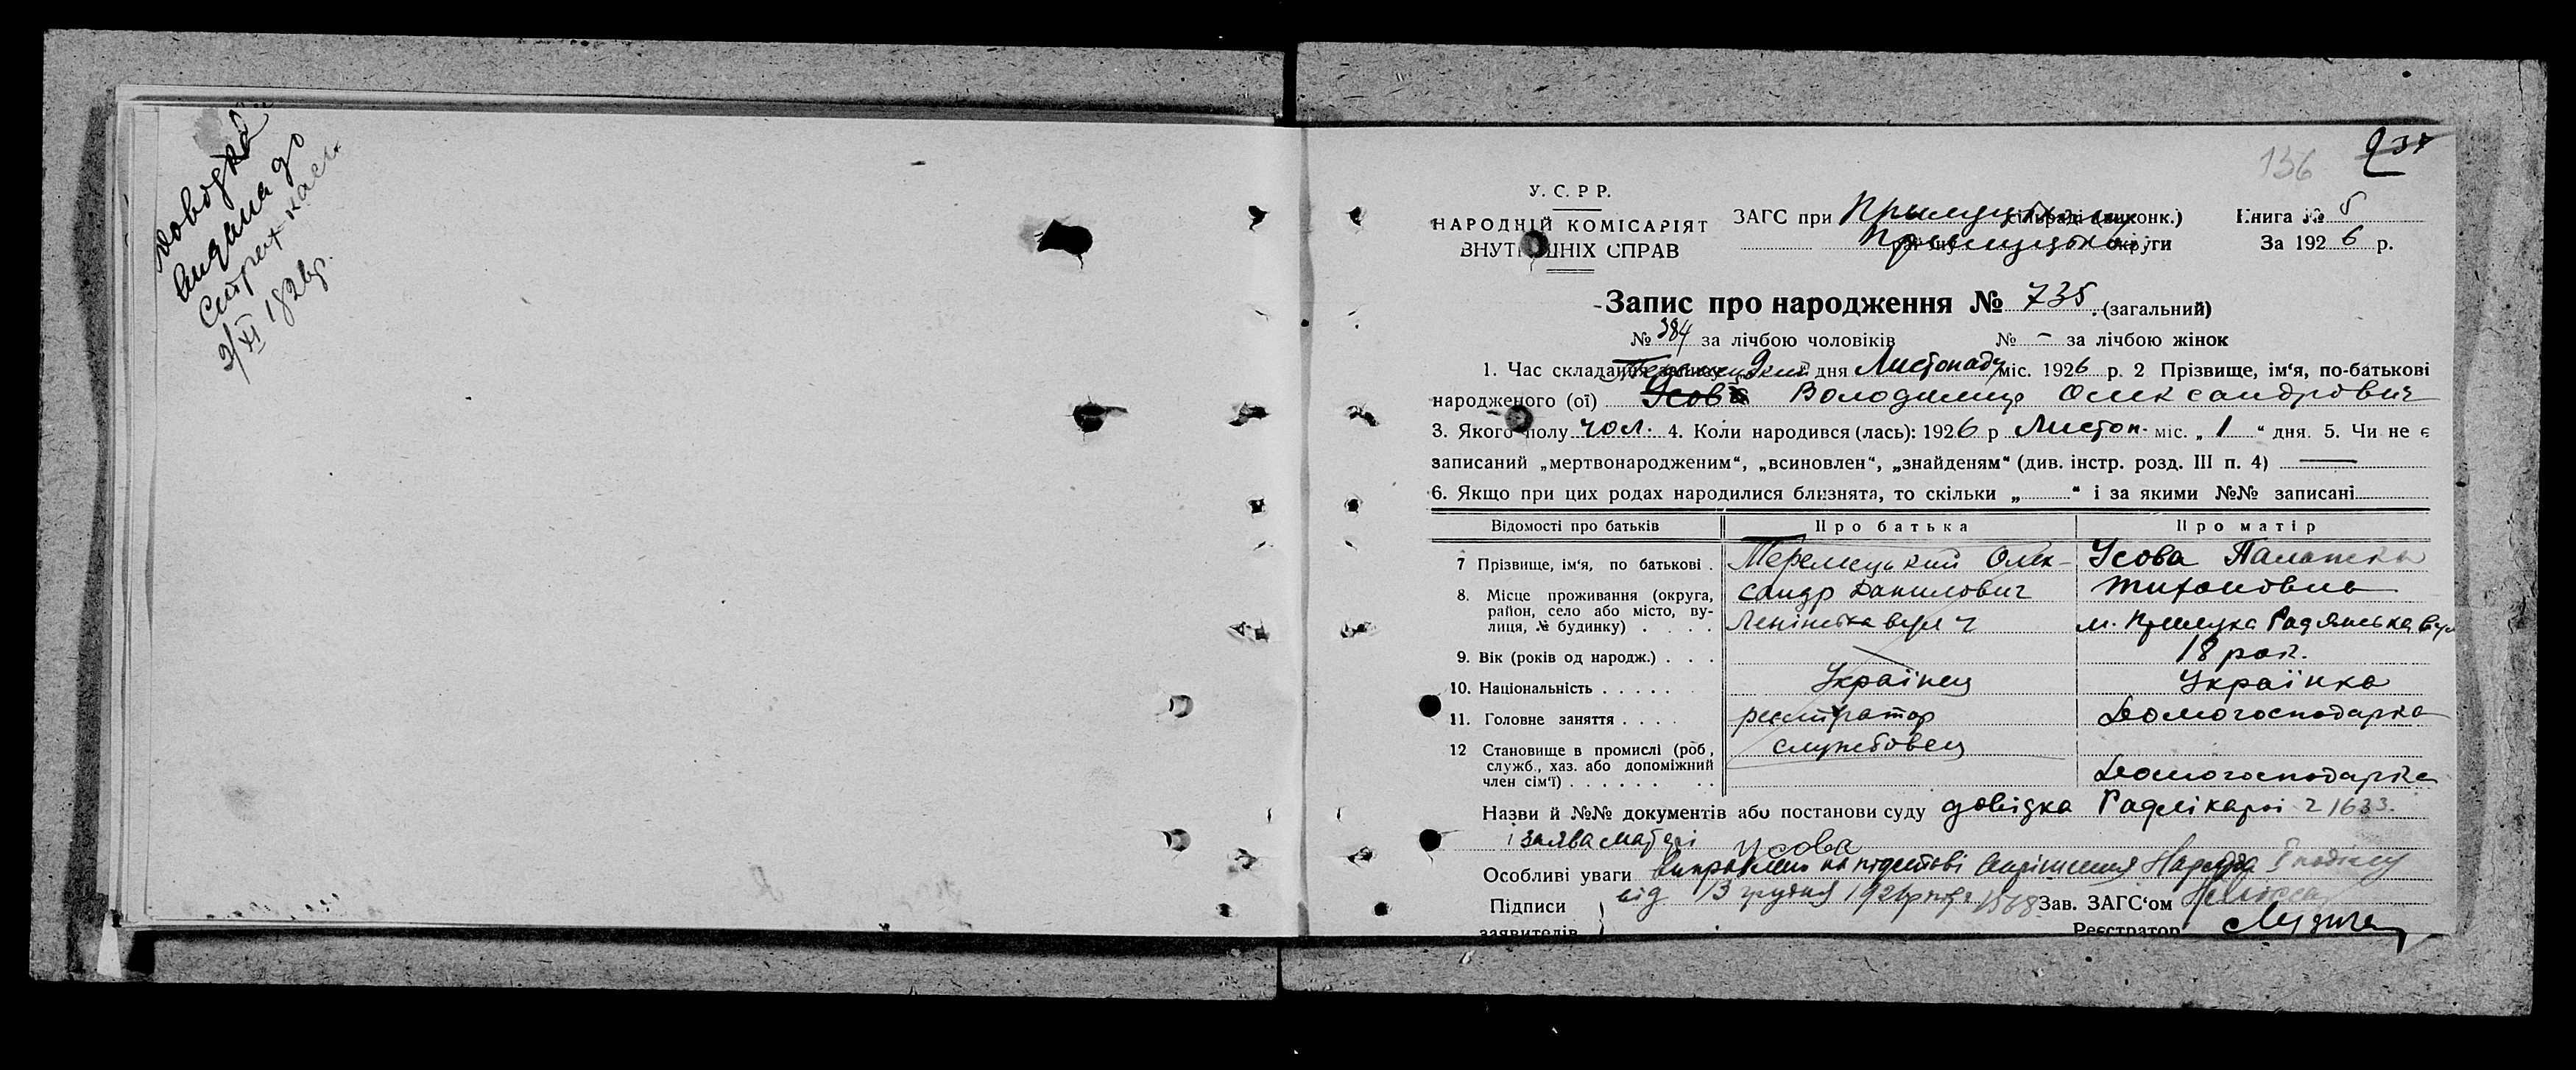 Довідка
видана до
Страх каси
2/XI 1926р.
136
237
У. С. Р Р.
НАРОДНІЙ КОМІСАРІЯТ
ВНУТРІШНІХ СПРАВ
ЗАГС при Прилуцьк. сільраді (виконк.)
Прилуцької округи
Книга № 5
За 1926 р.
Запис про народження № 735 (загальний)
№ 384 за лічбою чоловіків № – за лічбою жінок
1. Час складання запису 2 дня Листопаду міс. 1926 р. 2 Прізвище, ім‘я, по-батькові
народженого (ої) Усов Володимир Олександрович
3. Якого полу чол. 4. Коли народився (лась): 1926 р Листоп. міс. „ 1 “ дня. 5. Чи не є
записаний „мертвонародженим“, „всиновлен“, „знайденям“ (див. інстр. розд. III п. 4) —
6. Якщо при цих родах народилися близнята, то скільки „ “ і за якими №№ записані
Відомості про батьків Про батька Про матір
7 Прізвище, ім‘я, по батькові . Теремецький Олек- Усова Палажка
сандр Данилович Тихоновна
8. Місце проживання (округа, район, село або місто, вулиця, № будинку) . . . . Ленінська вул ч м. Прилука Радянська вул
9. Вік (років од народж.) . . . 18 рок.
10. Національність . . . . . Українец Українка
11. Головне заняття . . . . реєстратор Домогосподарка
12 Становище в промислі (роб, служб., хаз. або допоміжний член сім‘ї) . . . . . . . . службовец Домогосподарка
Назви й №№ документів або постанови суду довідка Радлікарні ч 1633.
і заява матері Усова
Особливі уваги Виправлено на підставі вирішення Нарсуда
від 13 грудня
Підписи
заявителів
Зав. ЗАГС‘ом
Реєстратор